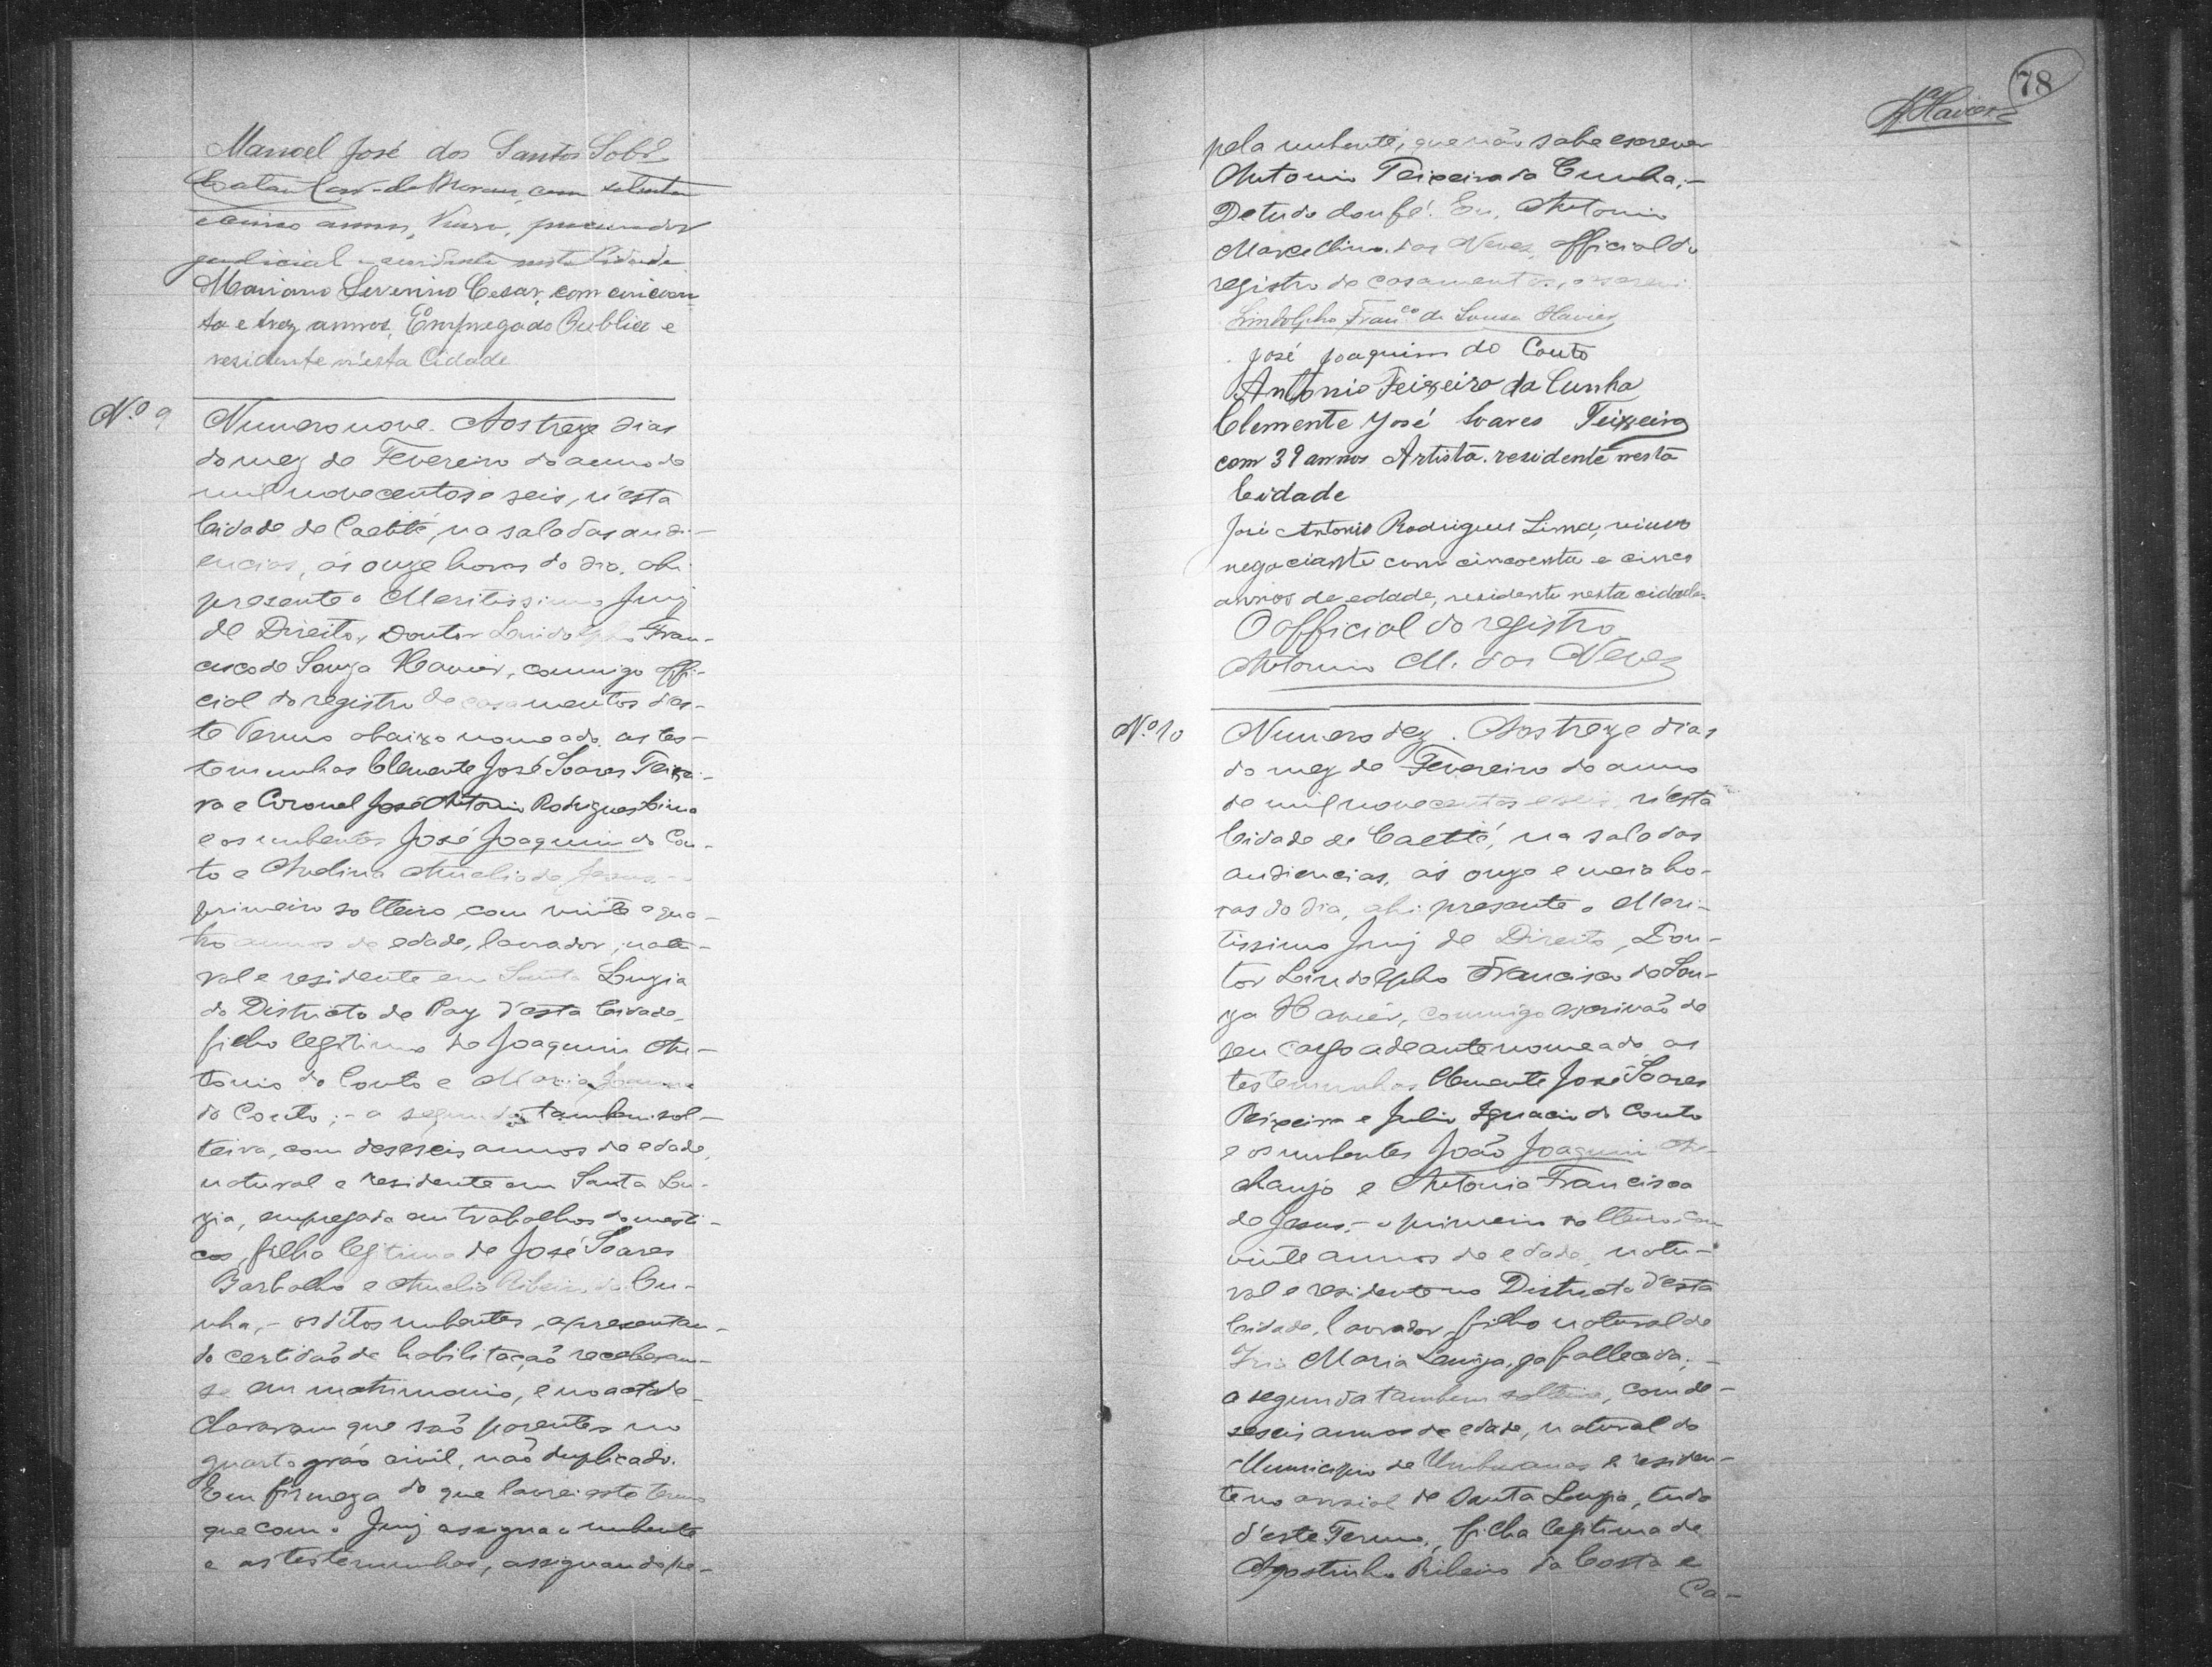 Manoel José dos Santos Sobr.
com setenta
e cinco annos, Viuvo, procurador
judicial e residente nesta Cidade
Mariano Severino Cesar, com cincoen
ta e trez annos, Empregado Publico e
residente n'esta Cidade
Nº 9
Numero nove. Aos treze dias
do mez de Fevereiro do anno de
mil novecentos e seis, n'esta
Cidade de Caetité, na sala das audi-
encias, ás onze horas do dia, ahi
presente o Meritissimo Juiz
de Direito, Doutor Lindolpho Fran-
cisco de Souza Xavier, commigo offi-
cial do registro de casamentos des-
te Termo abaixo nomeado, as tes-
temunhas Clemente José Soares Teixei-
ra e Coronel José Antonio Rodrigues Lima
e os nubentes José Joaquim do Cou-
to e Avelina Amelia de Jesus, -
primeiro solteiro, com vinte e qua-
tro annos de edade, lavrador, natu-
ral e residente em Santa Luzia
do Districto de Paz d'esta Cidade,
filho legitimo de Joaquim An-
tonio do Couto e Maria Joanna
do Couto; - a segunda, tambem sol-
teira, com deseseis annos de edade,
natural e residente em Santa Lu-
zia, empregada em trabalhos domesti-
cos, filha legitima de José Soares
Barbalho e Amelia Ribeiro da Cu-
nha, - os ditos nubentes, apresentan-
do certidão de habilitação receberam-
se em matrimonio, e no acto de-
clararam que são parentes no
quarto gráo civil, não duplicado.
Em firmeza do que lavrei este termo
que com o Juiz assigna o nubente
e as testemunhas, assignando pe-
78
Xavier
pela nubente, que não sabe escrever
Antonio Teixeira da Cunha; -
De tudo dou fé. Eu, Antonio
Marcellino das Neves, official do
registro de casamentos, o escrevi.
Lindolpho Franco. de Sousa Xavier
José Joaquim do Couto
Antonio Teixeira da Cunha
Clemente José Soares Teixeira
com 39 annos Artista. residente nesta
Cidade
José Antonio Rodrigues Lima, viuvo
negociante com cincoenta e cinco
annos de edade, residente nesta cidade
O official do registro
Antonio M. das Neves
Nº 10
Numero dez. Aos treze dias
do mez de Fevereiro do anno
de mil novecentos e seis, n'esta
Cidade de Caetité, na sala das
audiencias, ás onze e meia ho-
ras do dia, ahi presente o Meri-
tissimo Juiz de Direito, Dou-
tor Lindolpho Francisco de Sou-
za Xavier, commigo escrivão de
seu cargo adeante nomeado, as
testemunhas Clemente José Soares
Teixeira e Julio Ignacio do Couto
e os nubentes João Joaquim de
Araujo e Antonia Francisca
de Jesus, - o primeiro solteiro, com
vinte annos de edade, natu-
ral e residente no Districto d'esta
Cidade, lavrador, filho natural de
Maria Luiza, ja fallecida; -
a segunda tambem solteira, com de-
seseis annos de edade, natural do
Municipio de Umburanas e residen-
te no arraial de Santa Luzia, tudo
d'este Termo, filha legitima de
Agostinho Ribeiro da Costa e
Ca-